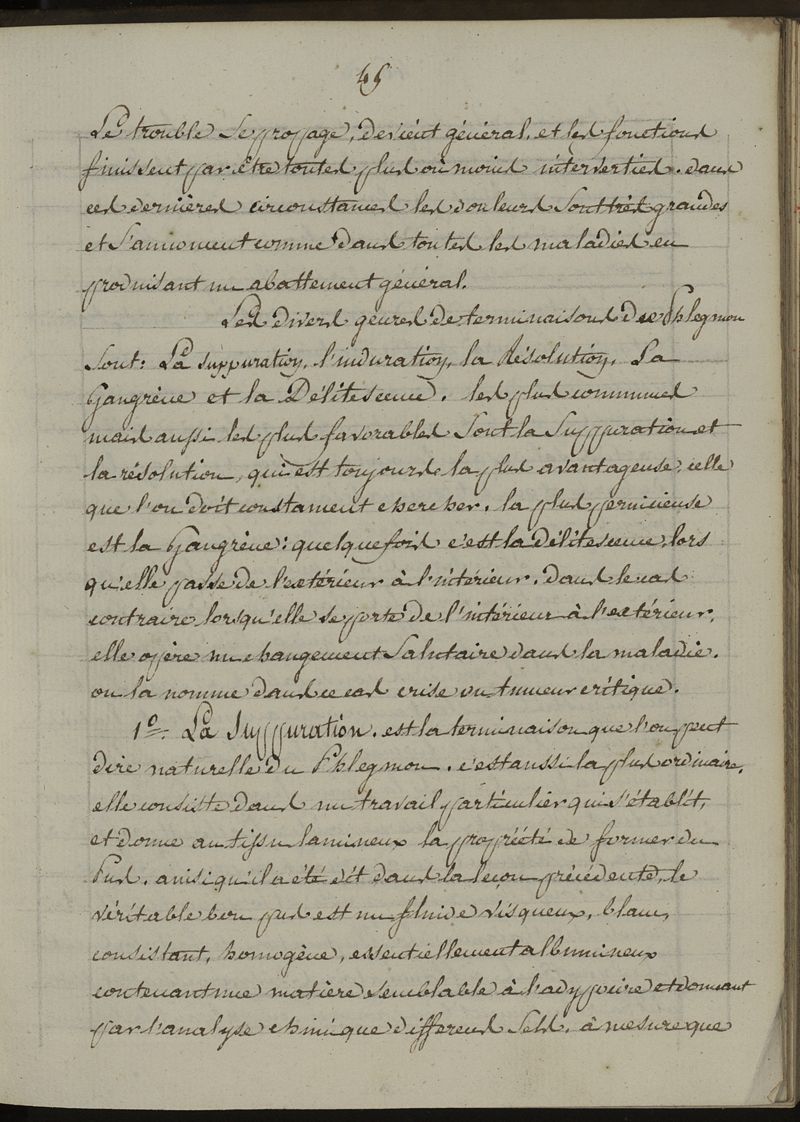 45
Le trouble se propage, devient général, et les fonctions
finissent par être toutes plus ou moins interverties. dans
ces dernières circonstances les douleurs sont très grandes
et s'annoncent comme dans toutes les maladies en
produisant un abattement général.
Les divers genres de terminaisons du Phlegmon
sont: La suppuration, l'induration, la Résolution, La
Gangrène et la Délitescence. les plus communes
mais aussi les plus favorables sont la Suppuration et
la résolution, qui est toujours la plus avantageuse, celle
que l'on doit constament chercher. la plus pernicieuse
est la Gangrène: quelquefois c'est la délitescence, lors
qu'elle passe de l'extérieur à l'intérieur. dans le cas
contraire lorsqu'elle se porte de l'intérieur à l'extérieur,
elle opère un changement salutaire dans la maladie.
on la nomme dans ce cas crise ou tumeur critique.
1º. La Suppuration. est la terminaison que l'on peut
dire naturelle du Phlegmon. c'est aussi la plus ordinaire,
elle consiste dans un travail particulier qui s'établit,
et donne au tissu lamineux la propriété de former du
Pus. ainsi qu'il a été dit dans la leçon précédente, le
véritable bon pus est un fluide visqueux, blanc,
consistant, homogène, essentiellement albumineux
contenant une matière semblable à l'adypocire et donnant
par l'analyse chimique differens Sels. à mesure que